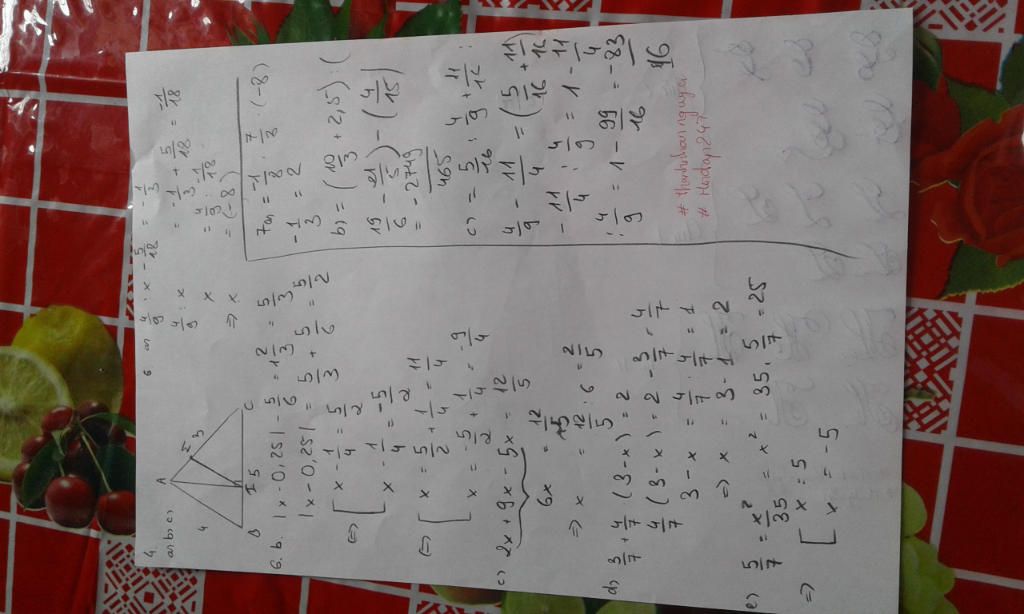 4.
a) b) c)
A
4
E
3
B
I
5
C
6. b. |x - 0,25| - 5/6 = 1 2/3 = 5/3
|x - 0,25| = 5/3 + 5/6 = 5/2
<=> [ x - 1/4 = 5/2
x - 1/4 = -5/2
<=> [ x = 5/2 + 1/4 = 11/4
x = -5/2 + 1/4 = -9/4
c) 2x + 9x - 5x = 12/5
6x = 12/5
=> x = 12/5 : 6 = 2/5
d) 3/7 + 4/7 (3 - x) = 2
4/7 (3 - x) = 2 - 3/7 =
3 - x =
=> x = 3 - 1 = 2
e) 5/7 = x²/35 = x² = 35 . 5/7 = 25
=> [ x = 5
x = -5
6 a) 4/9 : x - 5/18 = -1/3
4/9 : x = -1/3 + 5/18 = -1/18
x = 4/9 : -1/18
=> x = (-8)
7a) = -1/8 . 7/3 . (-8)
-1/3 = 2
b) = (10/3 + 2,5) : (
19/6 - 21/5) - (4/15)
= -2749/465
c) = 5/16 : 4/9 + 11/16 :
4/9 - 11/4 = (5/16 + 11/16)
- 11/4 : 4/9 = 1 - 11/4
: 4/9 = 1 - 99/16 = -83/16
# thanhnhannguyen
# Hoidap247